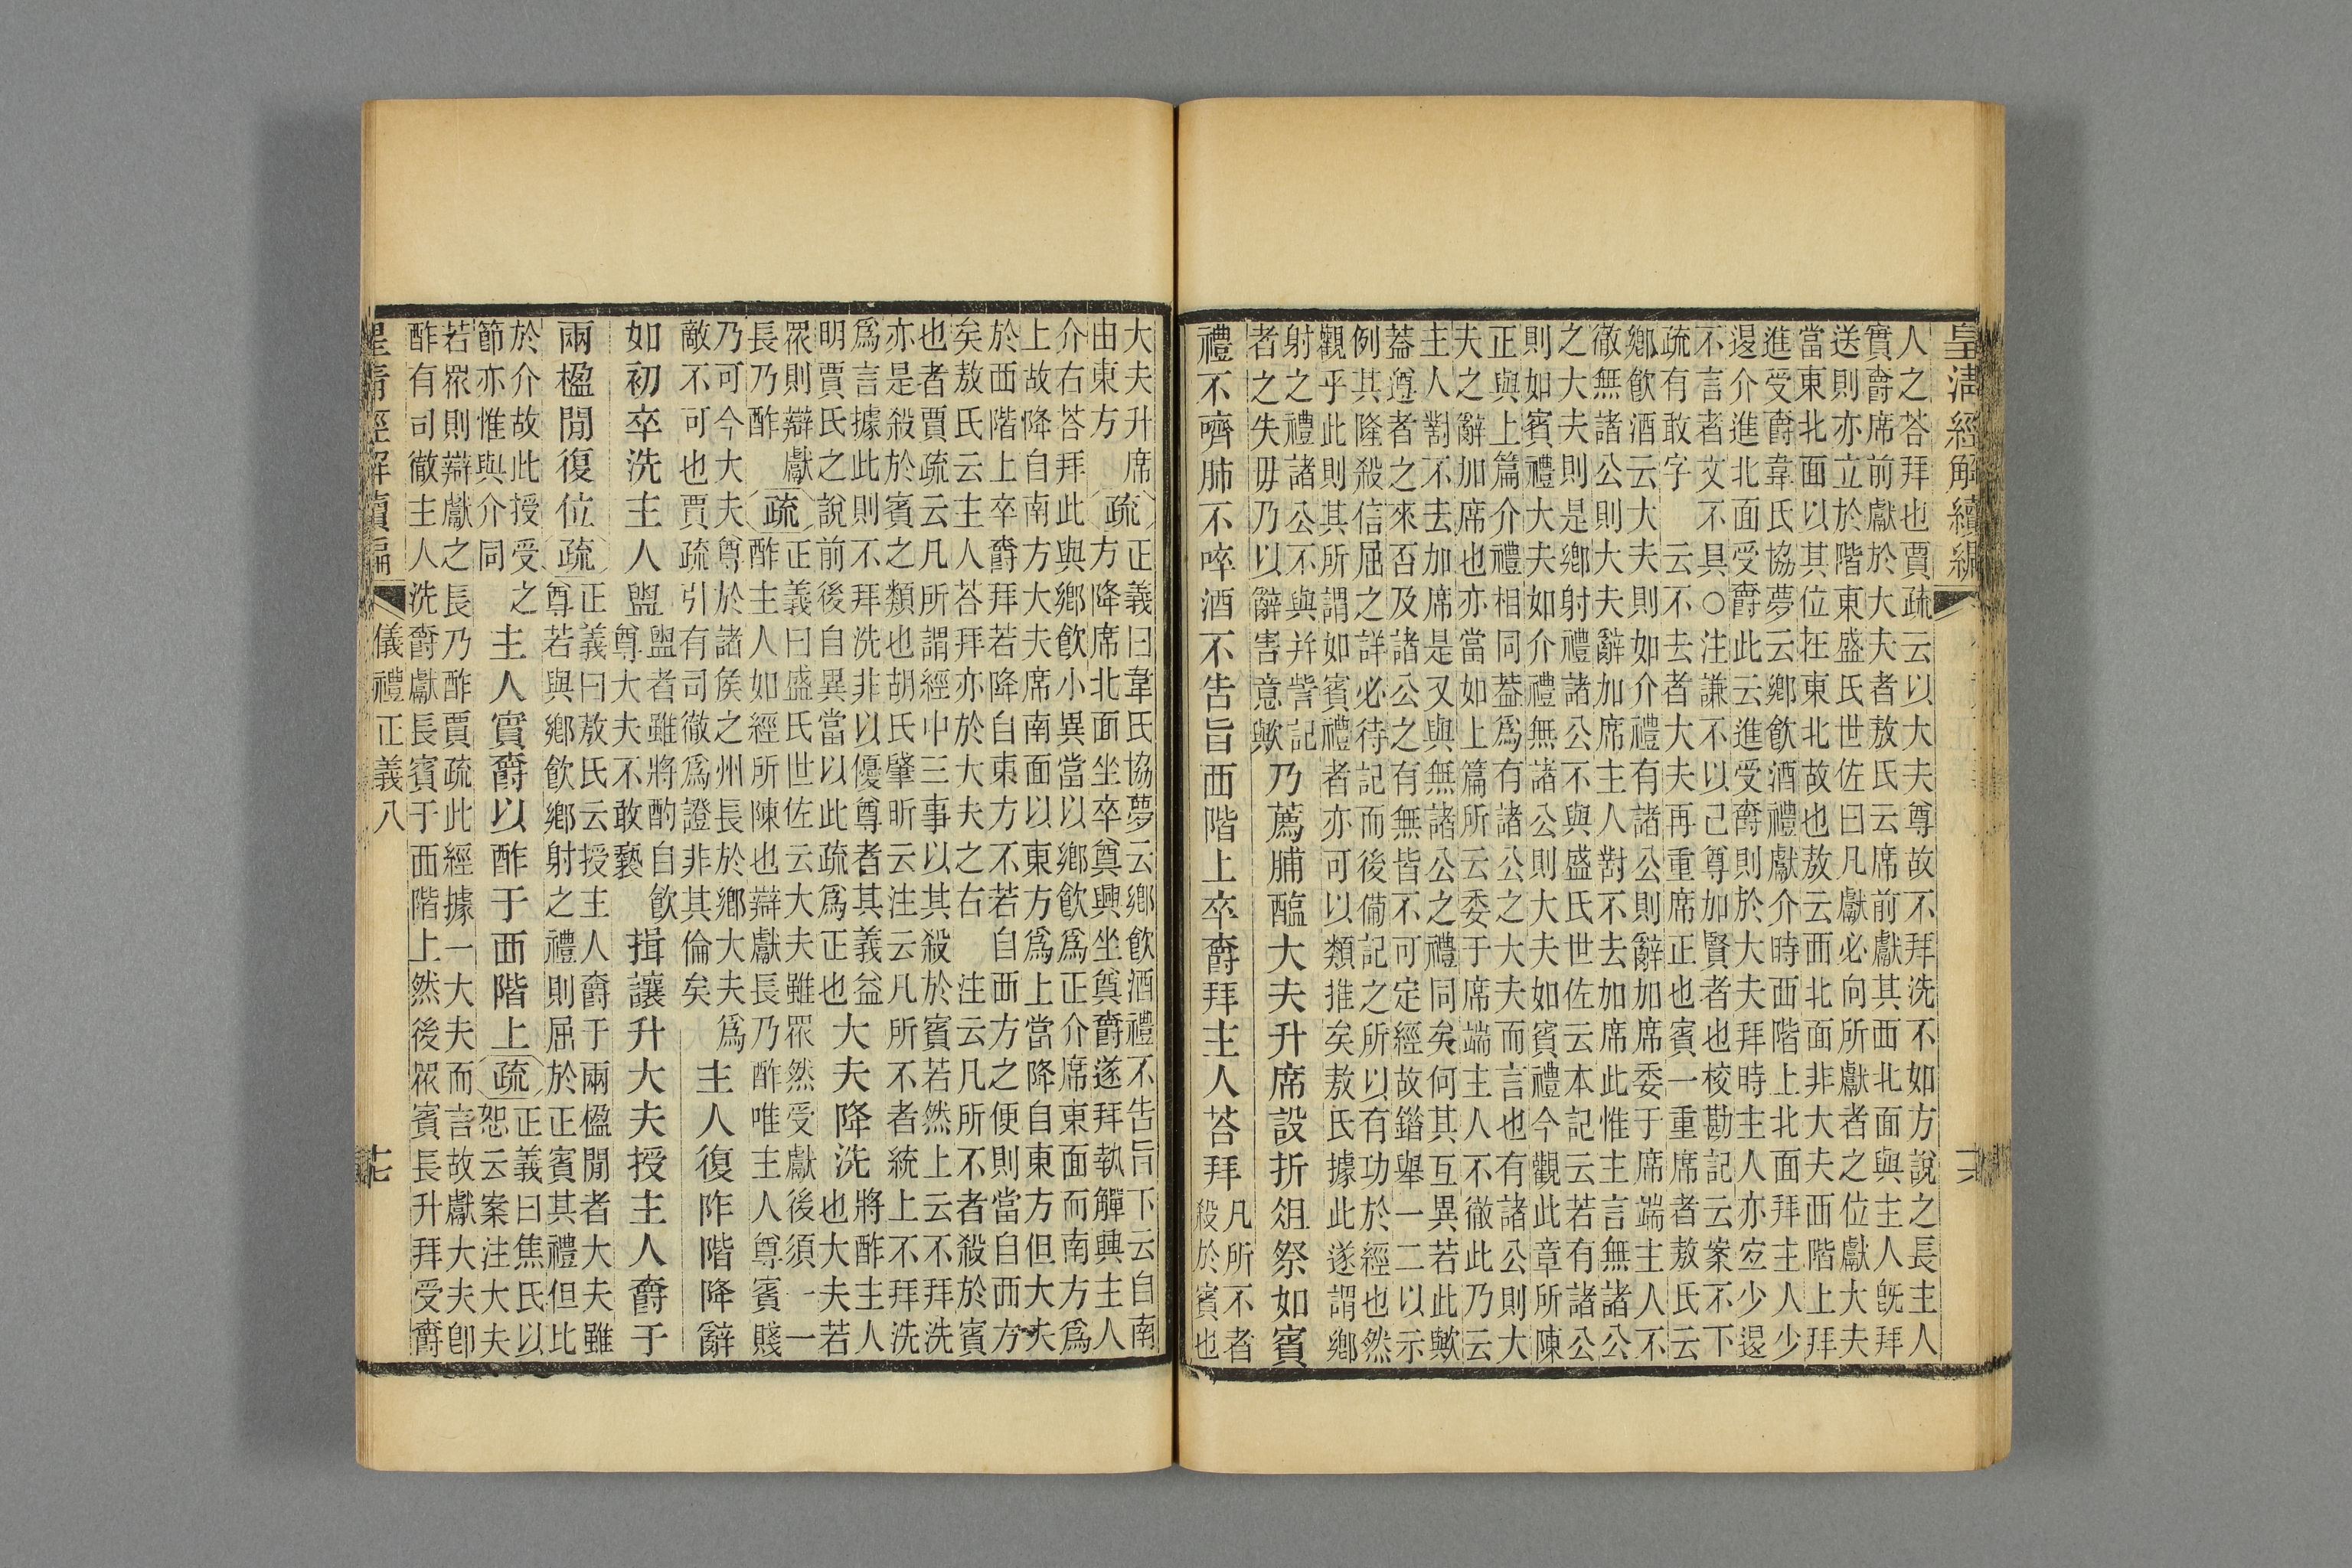 皇清經解續編
人之荅拜也賈疏云以大夫尊故不拜洗不如方說之長主人
實爵席前獻於大夫者敖氏云席前獻其西北面與主人旣拜
送則亦立於階東盛氏世佐曰凡獻必向所獻者之位獻大夫
當東北面以其位在東北故也敖云西北面非大夫西階上拜
進受爵韋氏協夢云鄉飮酒禮獻介時西階上北面拜主人少
退介進北面受爵此云進受爵則於大夫拜時主人亦宜少退
不言者文不具○注謙不以己尊加賢者也校勘記云案不下
疏有敢字 云不去者大夫再重席正也賓一重席者敖氏云
鄉飮酒云大夫則如介禮有諸公則辭加席委于席端主人不
徹無諸公則大夫辭加席主人對不去加席此惟主言無諸公
之大夫則是鄉射禮諸公不與盛氏世佐云本記云若有諸公
則如賓禮大夫如介禮無諸公則大夫如賓禮今觀此章所陳
正與上篇介禮相同蓋爲有諸公之大夫而言也有諸公則大
夫之辭加席也亦當如上篇所云委于席端主人不徹此乃云
主人對不去加席是又與無諸公之禮同矣何其互異若此歟
蓋遵者之來否及諸公之有無皆不可定經故錯舉一二以示
例其隆殺信屈之詳必待記而後備記之所以有功於經也然
觀乎此則其所謂如賓禮者亦可以類推矣敖氏據此遂謂鄉
射之禮諸公不與并訾記
者之失毋乃以辭害意歟
乃薦脯醢大夫升席設折俎祭如賓
禮不嚌肺不啐酒不告旨西階上卒爵拜主人荅拜
凡所不者
殺於賓也
大夫升席
由東方
疏
正義曰韋氏協夢云鄉飮酒禮不告旨下云自南
方降席北面坐卒奠興坐奠爵遂拜執觶興主人
介右荅拜此與鄉飮小異當以鄉飮爲正介席東面而南方爲
上故降自南方大夫席南面以東方爲上當降自東方但大夫
於西階上卒爵拜若降自東方不若自西方之便則當自西方
矣敖氏云主人荅拜亦於大夫之右 注云凡所不者殺於賓
也者賈疏云凡所謂經中三事以其殺於賓若然上云不拜洗
亦是殺於賓之類也胡氏肇昕云注云凡所不者統上不拜洗
爲言據此則不拜洗非以優尊者其義益
明賈氏之說前後自異當以此疏爲正也
大夫降洗
將酢主人
也大夫若
眾則辯獻
長乃酢
疏
正義曰盛氏世佐云大夫雖眾然受獻後須一一
酢主人如經所陳也辯獻長乃酢唯主人尊賓賤
乃可今大夫尊於諸侯之州長於鄉大夫爲
敵不可也賈疏引有司徹爲證非其倫矣
主人復阼階降辭
如初卒洗主人盥
盥者雖將酌自飮
尊大夫不敢褻
揖讓升大夫授主人爵于
兩楹閒復位
疏
正義曰敖氏云授主人爵于兩楹閒者大夫雖
尊若與鄉飮鄉射之禮則屈於正賓其禮但比
於介故此授受之
節亦惟與介同
主人實爵以酢于西階上
疏
正義曰焦氏以
恕云案注大夫
若眾則辯獻之長乃酢賈疏此經據一大夫而言故獻大夫卽
酢有司徹主人洗爵獻長賓于西階上然後眾賓長升拜受爵
皇清經解續編 儀禮正義八 十七